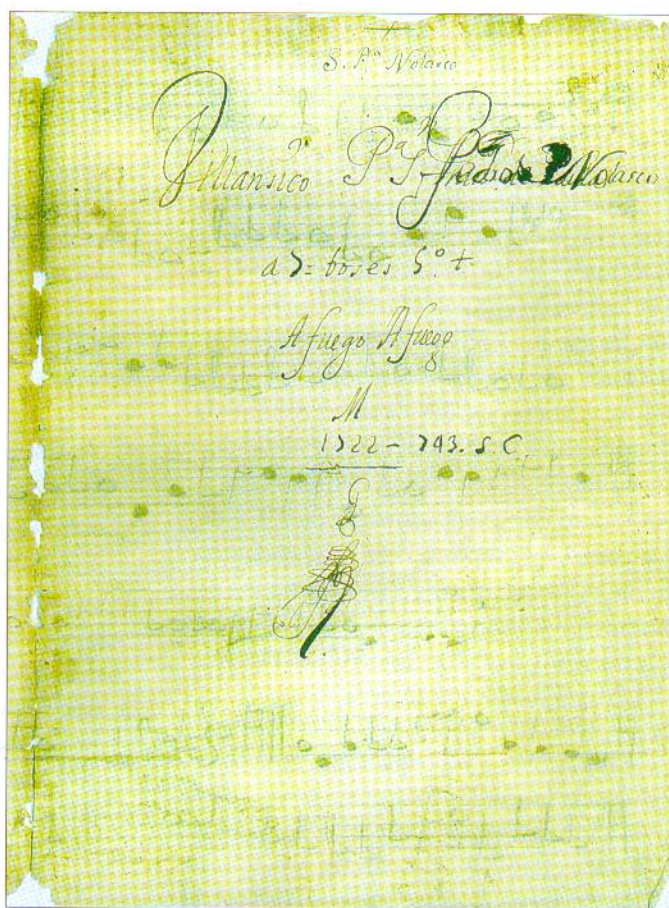 S. P.º Nolasco
Villansico Pª S.n Pedro Nolasco
a 7= boses 5.º t.
A fuego A fuego
M
1722 - 743. S. C.